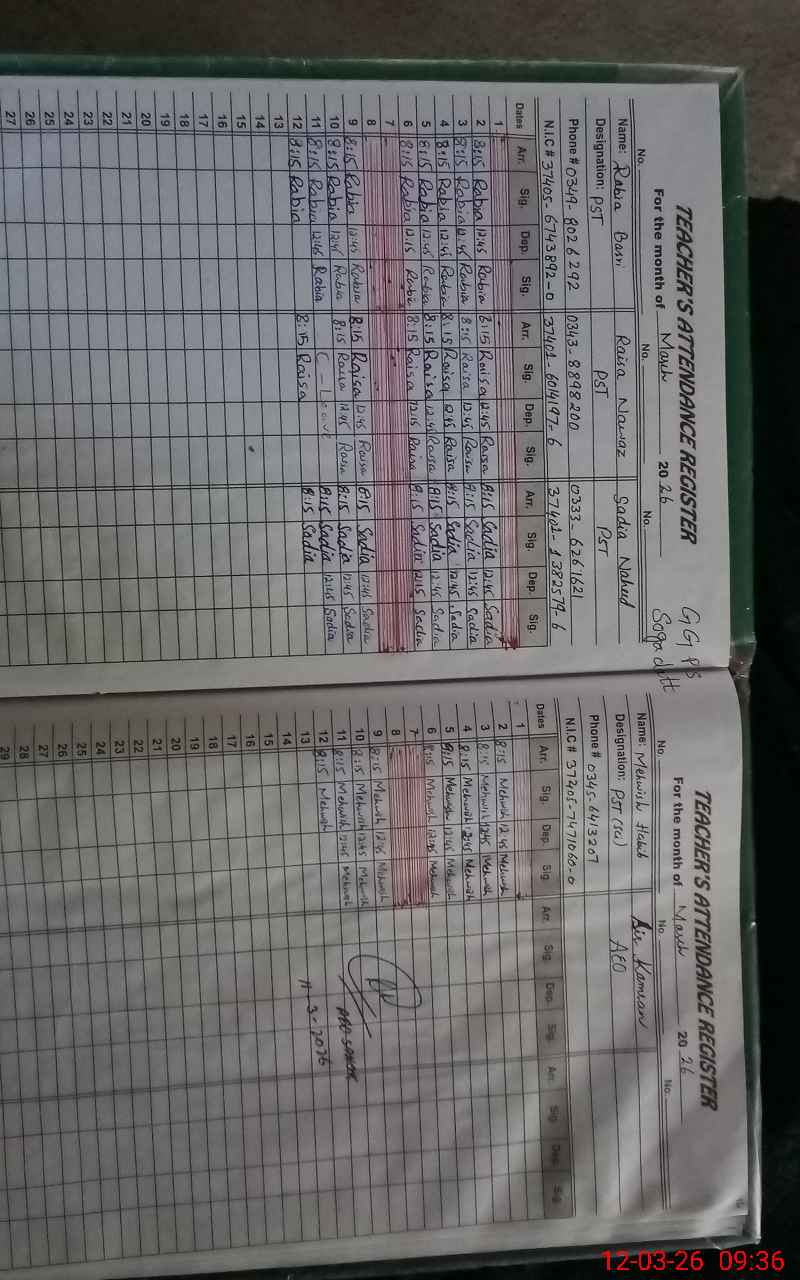 GGPS
TEACHER'S ATTENDANCE REGISTER
For the month of March 2026
No. No. No.
Name: Rabia Basri Raisa Nawaz Sadia Naheed
Designation: PST PST PST
Phone # 0349-8026292 0343-8898200 0333-6261621
N.I.C # 37405-6743892-0 37401-6014197-6 37401-1382579-6
Dates Arr. Sig. Dep. Sig. Arr. Sig. Dep. Sig. Arr. Sig. Dep. Sig.
1
2 8:15 Rabia 12:45 Rabia 8:15 Raisa 12:45 Raisa 8:15 Sadia 12:45 Sadia
3 8:15 Rabia 12:45 Rabia 8:15 Raisa 12:45 Raisa 8:15 Sadia 12:45 Sadia
4 8:15 Rabia 12:45 Rabia 8:15 Raisa 12:45 Raisa 8:15 Sadia 12:45 Sadia
5 8:15 Rabia 12:45 Rabia 8:15 Raisa 12:45 Raisa 8:15 Sadia 12:45 Sadia
6 8:15 Rabia 12:15 Rabia 8:15 Raisa 12:15 Raisa 8:15 Sadia 12:15 Sadia
7
8
9 8:15 Rabia 12:45 Rabia 8:15 Raisa 12:45 Raisa 8:15 Sadia 12:45 Sadia
10 8:15 Rabia 12:45 Rabia 8:15 Raisa 12:45 Raisa 8:15 Sadia 12:45 Sadia
11 8:15 Rabia 12:45 Rabia C-Leave 8:15 Sadia 12:45 Sadia
12 8:15 Rabia 8:15 Raisa 8:15 Sadia
13
14
15
16
17
18
19
20
21
22
23
24
25
26
27
TEACHER'S ATTENDANCE REGISTER
For the month of March 2026
No. No. No.
Name: Mehwish Habib Sir Kamran
Designation: PST (SC) AEO
Phone # 0345-6413207
N.I.C # 37405-7471060-0
Dates Arr. Sig. Dep. Sig. Arr. Sig. Dep. Sig. Arr. Sig. Dep. Sig.
1
2 8:15 Mehwish 12:45 Mehwish
3 8:15 Mehwish 12:45 Mehwish
4 8:15 Mehwish 12:45 Mehwish
5 8:15 Mehwish 12:45 Mehwish
6 8:15 Mehwish 12:15 Mehwish
7
8
9 8:15 Mehwish 12:45 Mehwish
10 8:15 Mehwish 12:45 Mehwish
11 8:15 Mehwish 12:45 Mehwish
12 8:15 Mehwish
13
14
15
16
17
18
19
20
21
22
23
24
25
26
27
28
29
AEO
11-3-2026
12-03-26 09:36